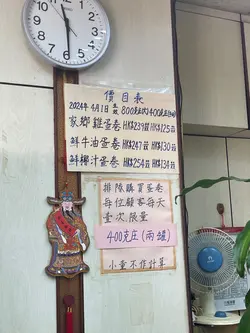 價目表
2024年4月1日 800克庄(大)400克庄(細)
家鄉雞蛋卷 HK$239 HK$125
鮮牛油蛋卷 HK$247 HK$130
鮮椰汁蛋卷 HK$254 HK$134
排隊購買蛋卷
每位顧客每天
壹次限量
400克庄(兩罐)
小童不作計算